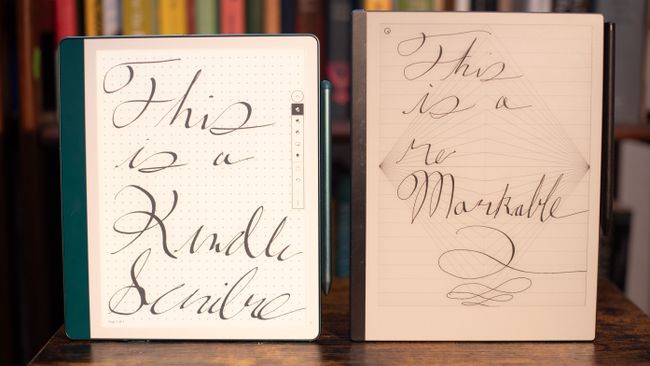 This
is a
Kindle
Scribe
This
is a
re
Markable